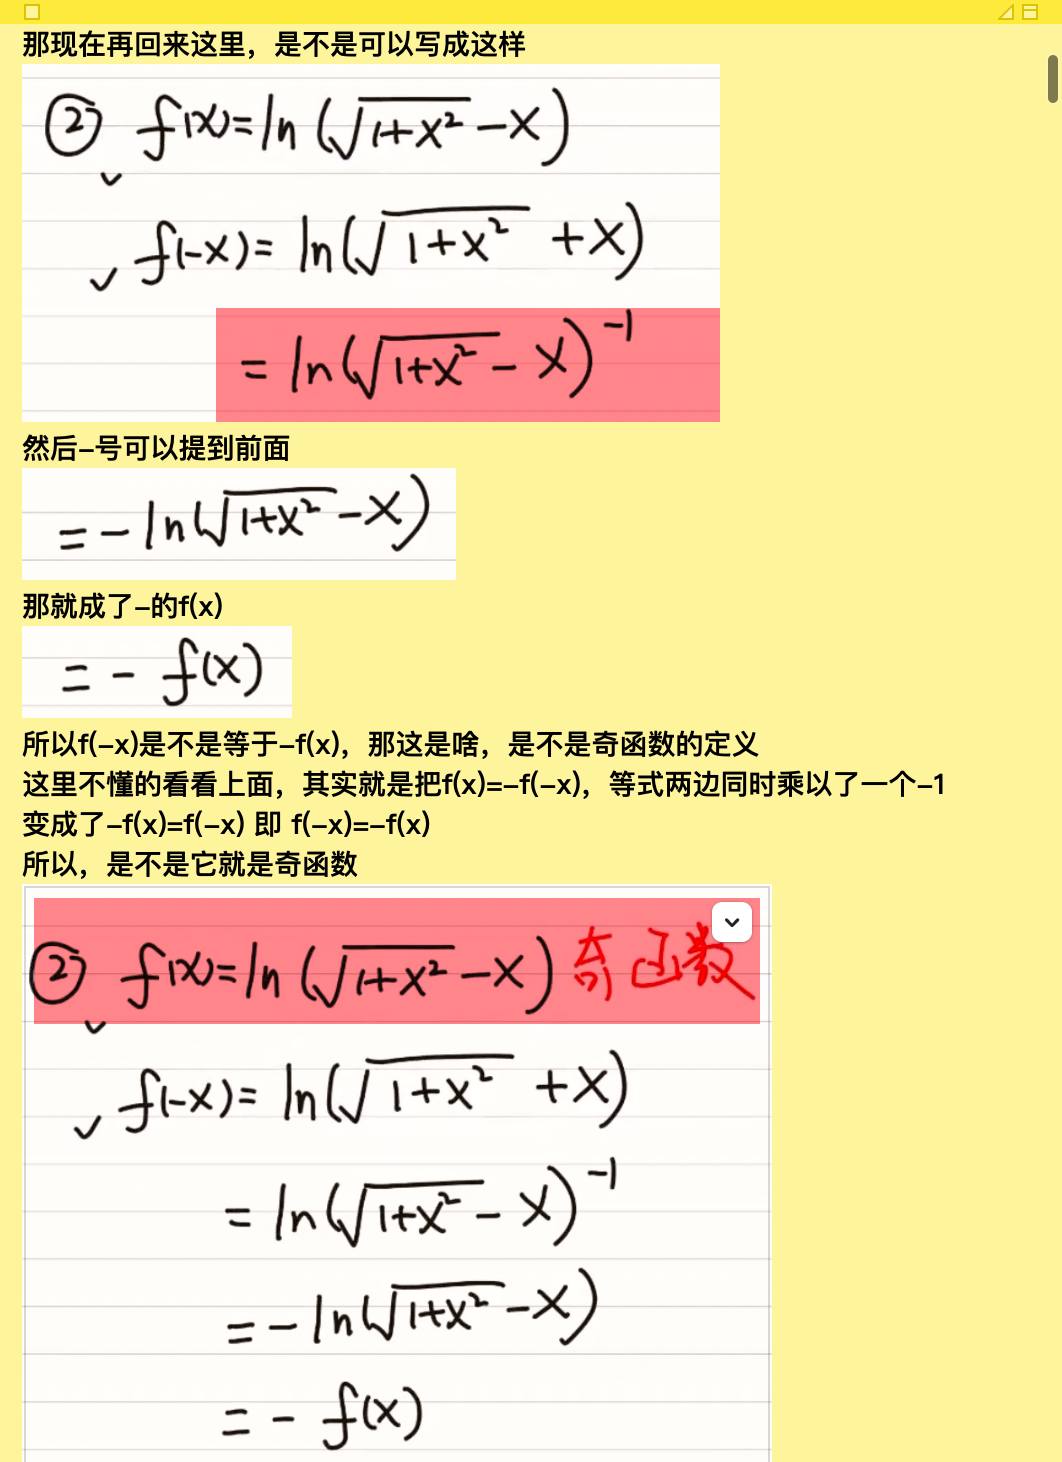 那现在再回来这里，是不是可以写成这样
② f(x)=ln(√1+x² -x)
f(-x)= ln(√1+x² +x)
= ln(√1+x² - x)⁻¹
然后-号可以提到前面
=-ln(√1+x² -x)
那就成了-的f(x)
= - f(x)
所以f(-x)是不是等于-f(x)，那这是啥，是不是奇函数的定义
这里不懂的看看上面，其实就是把f(x)=-f(-x)，等式两边同时乘以了一个-1
变成了-f(x)=f(-x) 即 f(-x)=-f(x)
所以，是不是它就是奇函数
② f(x)=ln(√1+x² -x) 奇函数
f(-x)= ln(√1+x² +x)
= ln(√1+x² - x)⁻¹
=-ln(√1+x² -x)
= - f(x)